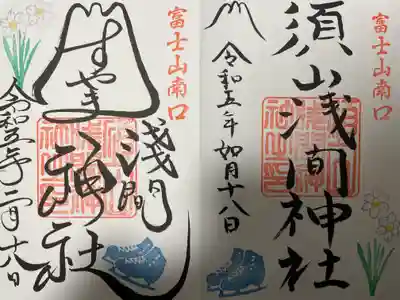 富士山南口
須山浅間神社
令和五年如月十八日
富士山南口
すやま
浅間
神社
令和五年二月十八日